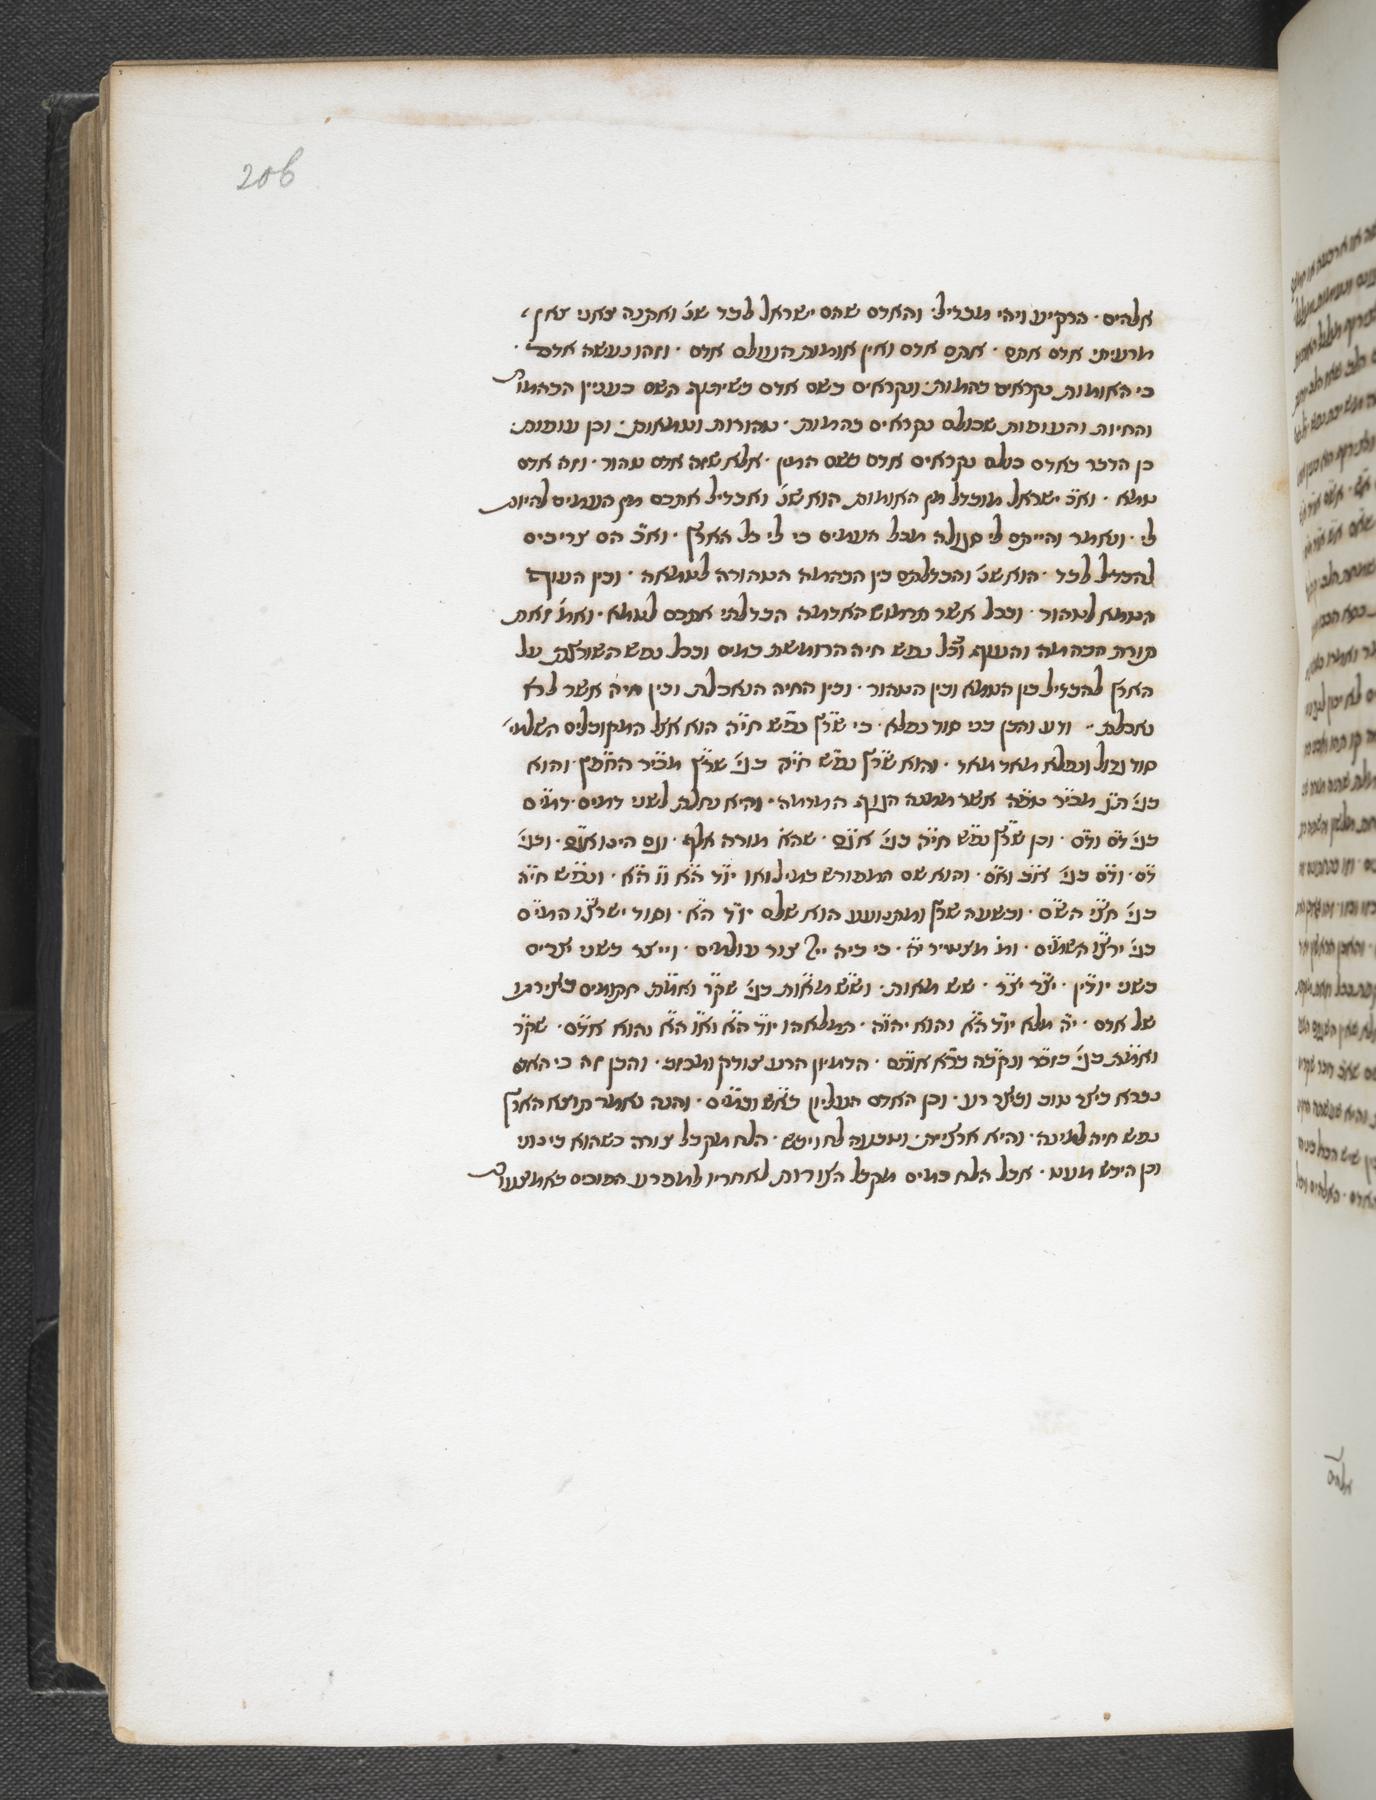 206
אלהים · הרקיע ויהי מבדיל · והאדם שהם ישראל לבד שנ' ואתנה צאני צאן
מרעיתי אדם אתם · אתם אדם ואין אומות העולם אדם · וזהו נעשה אדם ·
כי האומות נקראים בהמות · ונקראים בשם אדם בשיתוף השם כענין הבהמו'
והחיות והעופות שכולם נקראים בהמות · טהורות וטמאות · וכן עופות ·
כן הדבר באדם כולם נקראים אדם משם המין · אלא שזה אדם טהור · וזה אדם
טמא · וא"כ ישראל מובדל מן האומות הוא שנ' ואבדיל אתכם מן העמים להיות
לי · ונאמר והייתם לי סגולה מכל העמים כי לי כל הארץ · וא"כ הם צריכים
להבדיל לבד · הוא שנ' והבדלתם בין הבהמה הטהורה לטמאה · ובין העוף
הטמא לטהור · ובכל אשר תרמוש האדמה הבדלתי אתכם לטמא · ואמ' זאת
תורת הבהמה והעוף וכל נפש חיה הרומשת במים ובכל נפש השורצת על
הארץ להבדיל בין הטמא ובין הטהור · ובין החיה הנאכלת ובין חיה אשר לא
נאכלת · ודע והבן בכי סוד נפלא · כי שרץ נפש חיה הוא אצל המקובלים השלמי'
סוד גדול ונפלא מאד מאד · והוא שרץ נפש חיה בגי' שרץ מכיר החפץ · והוא
בגי' מכיר משה אשר ממנה הגוף המדמה · והיא נחלת לשני דמים · דמים
בגי' דם ודם · וכן שרץ נפש חיה בגי' אדם · שהא' מורה אלף · וגם הינו אדם · ובגי'
דם · ודם בגי' אב ואם · והוא שם המפורש במילואו יוד הא וו הא · ונפש חיה
בגי' חצי השם · ובשעה שרץ ומתנועע הוא שלם יוד הא · וסוד ישרצו המים
בגי' ירצו השמים · ומ' מצטייר יה · כי ביה יי"י צור עולמים · וייצר בשני יצרים
בשני יודין · יצר יצר · שש מאות · ושש מאות בגי' שקר ואמת חקוקים בצירתו
של אדם · יה מלא יוד הא והוא יהוה · המלאהו יוד הא ואו הא והוא אדם · שקר
ואמת בגי' בזכר ונקבה ברא אותם · הדמיון הרע צודק ומכזב · והבן זה כי האדם
נברא ביצר טוב וביצר רע · וכן האדם העליון באש ובמים · והנה נאמר תוצא הארץ
נפש חיה למינה · והיא ארציית · וטבעה לח ויבש · הלח מקבל צורה כשהוא בינוני
וכן היבש מעט · אבל הלח במים מקבל הצורות לאחריו למפרע הפוכים באמצעו'